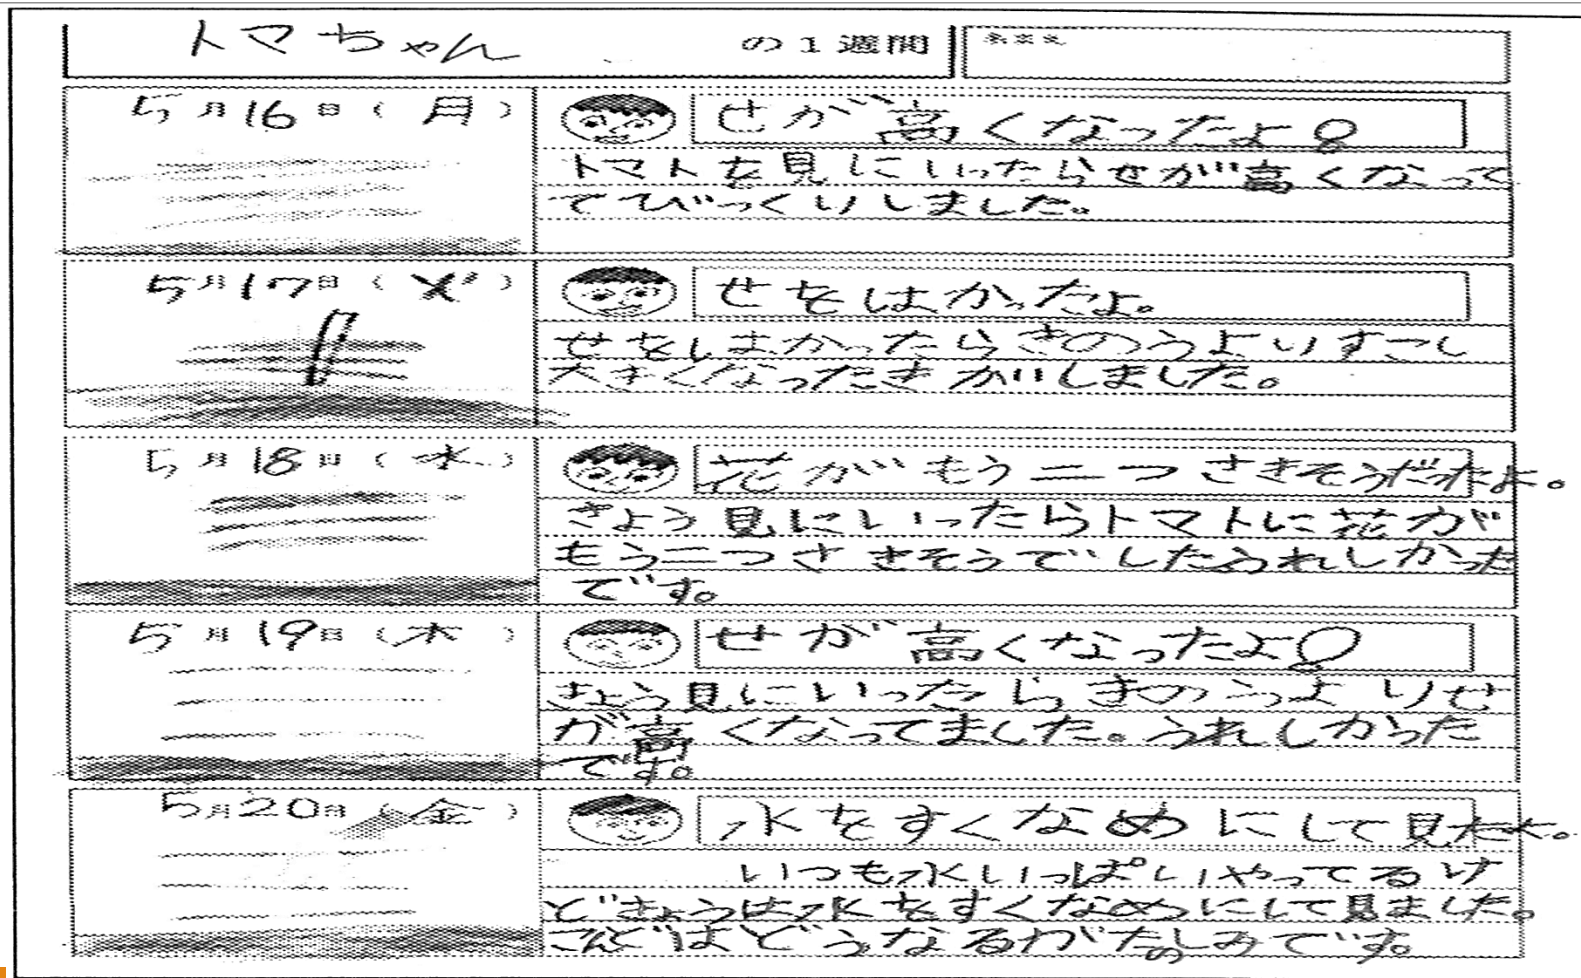 トマちゃん の1週間
5月16日(月)
せが高くなったよ。
トマトを見にいったらせが高くなって
てびっくりしました。
5月17日(火)
せをはかったよ。
せをはかったらきのうよりすこし
大きくなったきがいしました。
5月18日(水)
花がもう二つさきそうだったよ。
きょう見にいったらトマトに花が
もう二つさきそうでしたうれしかった
です。
5月19日(木)
せが高くなったよ。
きょう見にいったらきのうよりせ
が高くなってました。うれしかった
です。
5月20日(金)
水をすくなめにして見たよ。
いつも水いっぱいやってるけ
どきょうは水をすくなめにして見ました。
こんどはどうなるかたのしみです。